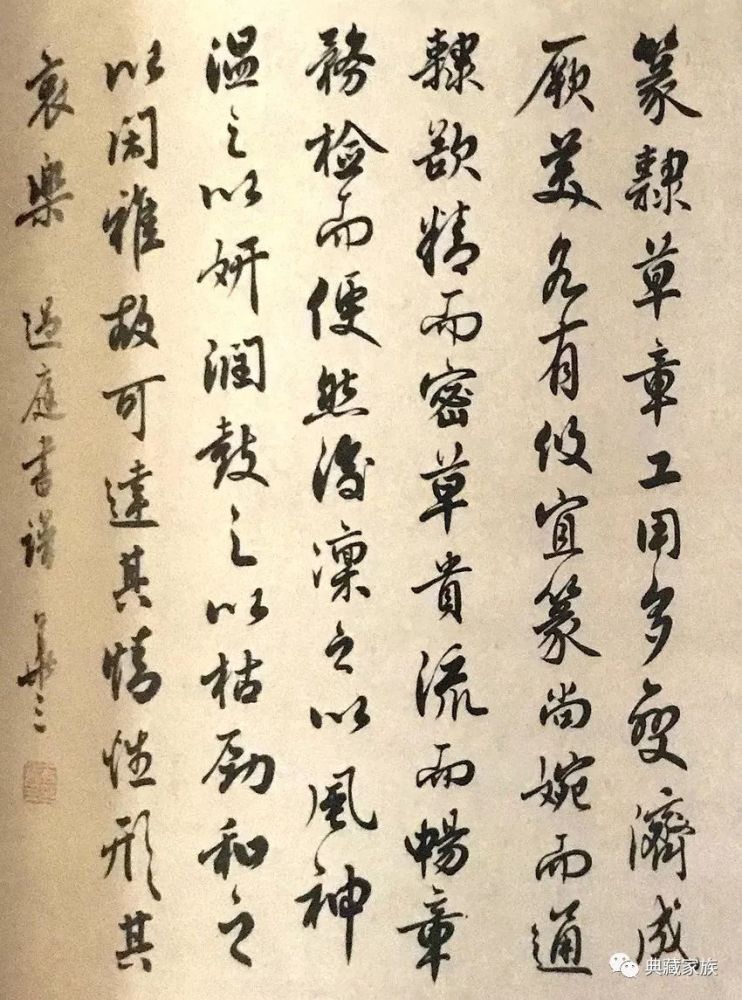 篆隸草章工用多變濟成
厥美各有攸宜篆尚婉而通
隸欲精而密草貴流而暢章
務檢而便然後凜之以風神
溫之以妍潤鼓之以枯勁和之
以閑雅故可達其情性形其
哀樂 過庭書譜
典藏家族